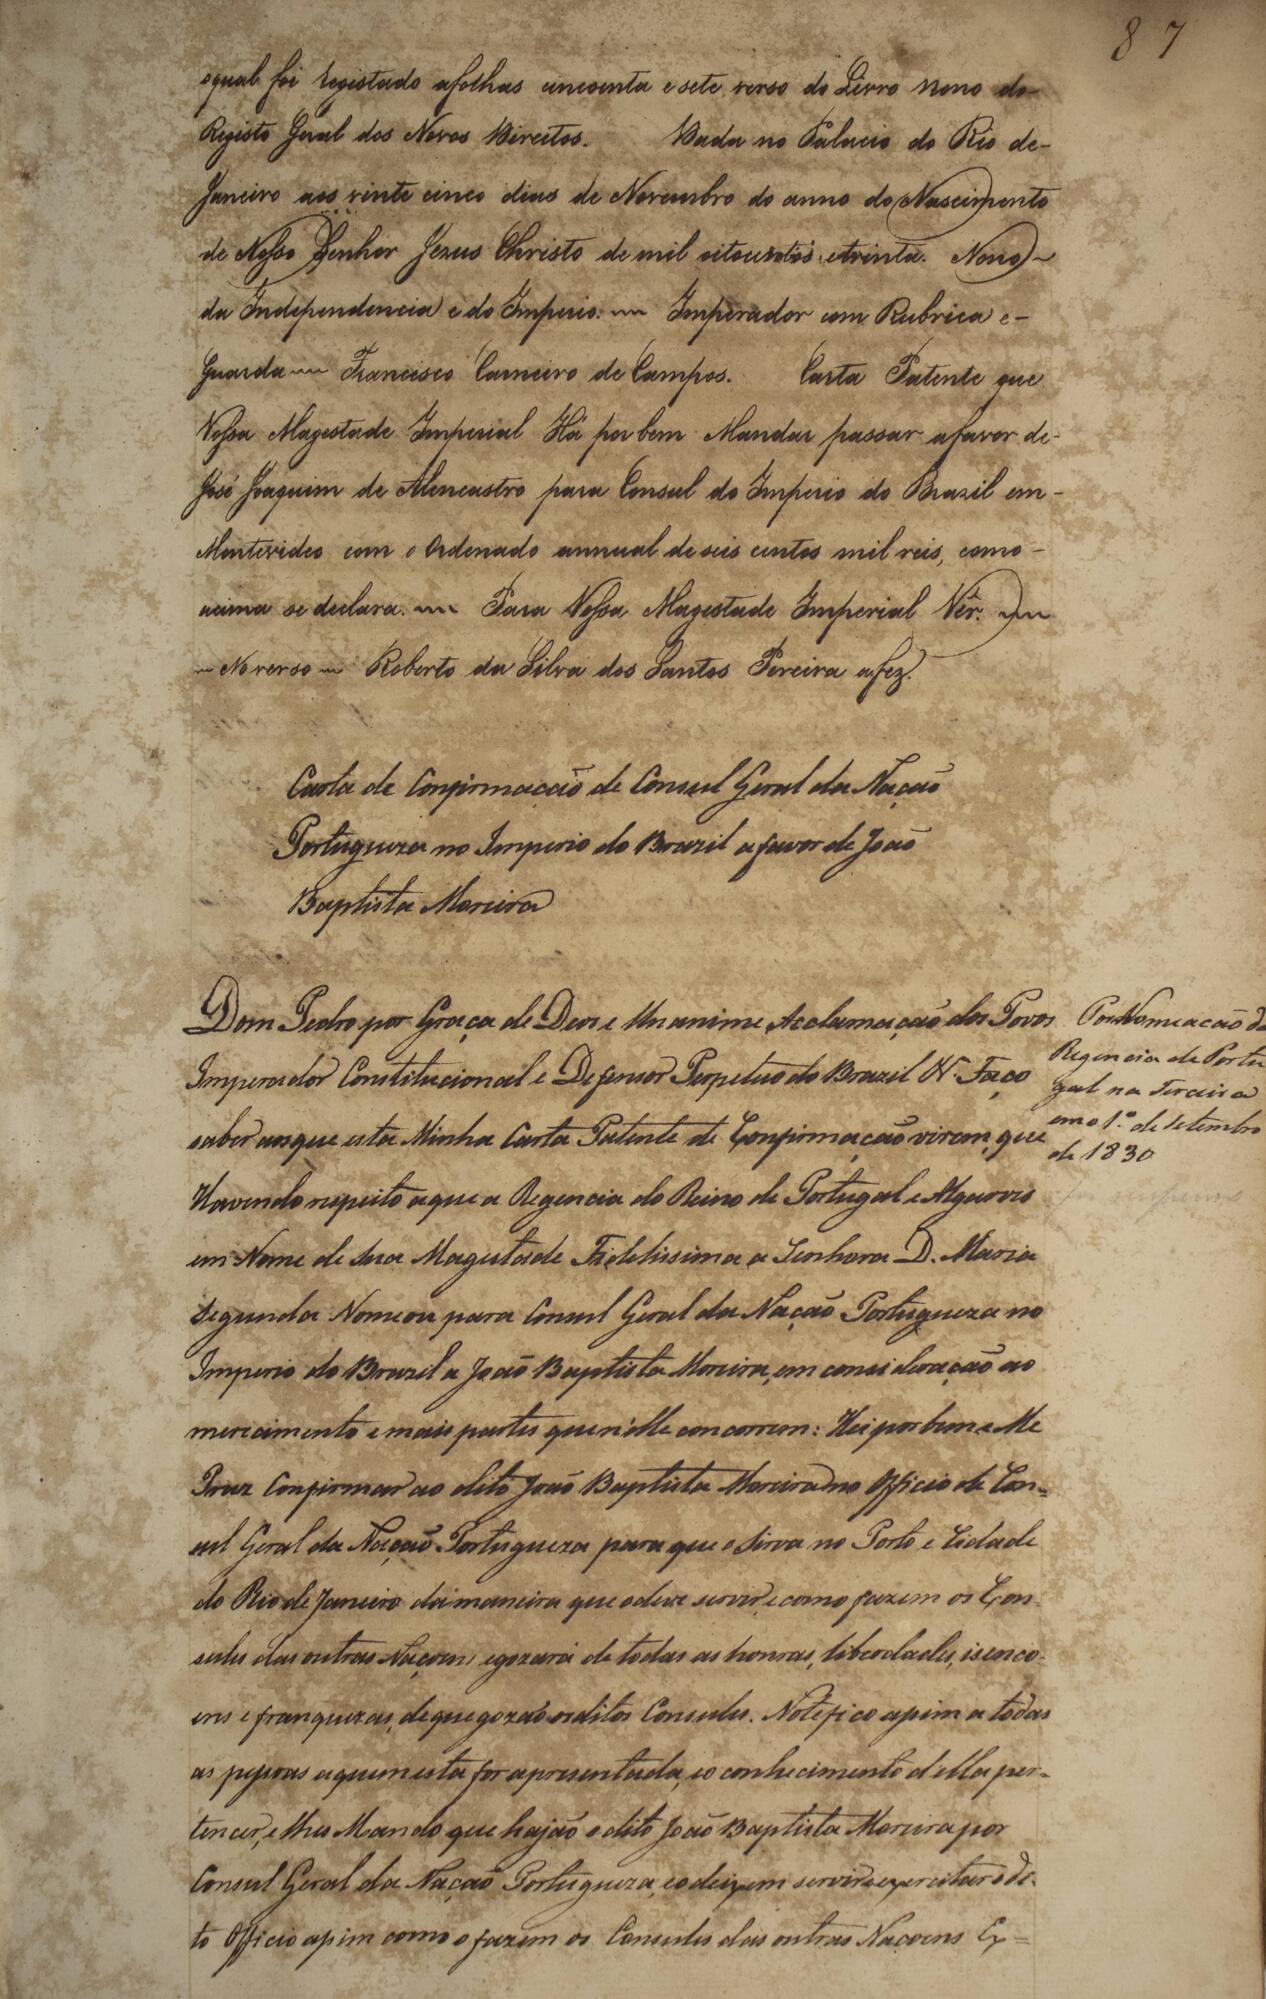 87
oqual foi registado afolhas cincoenta esete verso do Livro nono do-
Registo Geral dos Novos Direitos. Dada no Palacio do Rio de-
Janeiro aos vinte cinco dias de Novembro do anno do Nascimento
de Nosso Senhor Jezus Christo de mil oitocentos etrinta. Nono
da Independencia e do Imperio. Imperador com Rubrica e-
Guarda Francisco Carneiro de Campos. Carta Patente que
Vossa Magestade Imperial Há por bem Mandar passar afavor de-
José Joaquim de Alencastro para Consul do Imperio do Brazil em-
Montevideo com o Ordenado annual de seis centos mil reis, como-
acima se declara. Para Vossa Magestade Imperial Vêr.
No verso Roberto da Silva dos Santos Pereira afez.
Carta de Confirmação de Consul Geral da Nação
Portugueza no Imperio do Brazil a favor de João
Baptista Moreira
Dom Pedro por Graça de Deos e Unanime Acclamação dos Povos
Imperador Constitucional e Defensor Perpetuo do Brazil &. Faço
saber aos que esta Minha Carta Patente de Confirmação virem, que
Havendo respeito a que a Regencia do Reino de Portugal e Algarves
em Nome de Sua Magestade Fidelissima a Senhora D. Maria
Segunda Nomeou para Consul Geral da Nação Portugueza no
Imperio do Brazil a João Baptista Moreira, em consideração ao
merecimento e mais partes que n'elle concorrem: Hei por bem e Me
Praz Confirmar ao dito João Baptista Moreira no Officio de Con=
sul Geral da Nação Portugueza para que o sirva no Porto e Cidade
do Rio de Janeiro da maneira que o deve servir, e como fazem os Con
sules das outras Naçoens egozará de todas as honras, liberdades, isenço-
ens e franquezas, de que gozão os ditos Consules. Notefico assim a todas
as pessoas a quem esta for apresentada, e o conhecimento d'ella per-
tencer, e lhes Mando que hajão o dito João Baptista Moreira por
Consul Geral da Nação Portugueza, e o deixem servir e exercitar o di-
to Officio assim como o fazem os Consules das outras Naçoens Ex=
Por Nomeação da
Regencia de Portu
gal na Terceira
em o 1º. de Setembro
de 1830